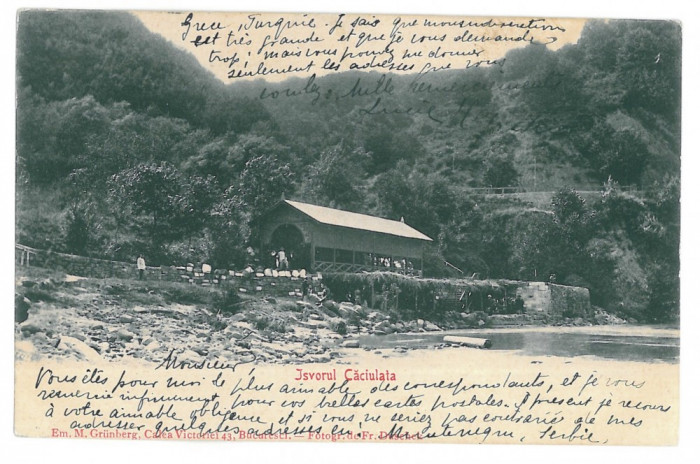 Grèce, Turquie. Je sais que mon indiscrétion
est très grande et que je vous demande
trop! mais vous pouvez me donner
seulement les adresses que vous
voulez. Mille remerciements
Isvorul Căciulata
Monsieur
Vous êtes pour moi le plus aimable des correspondants, et je vous
remercie infiniment pour vos belles cartes postales. A présent je recours
à votre aimable obligence et si vous ne seriez pas
adresser quelques adresses en: Montenegru, Serbie,
Em. M. Grünberg, Calea Victoriei 43, Bucuresci. – Fotogr. de Fr. Duschek